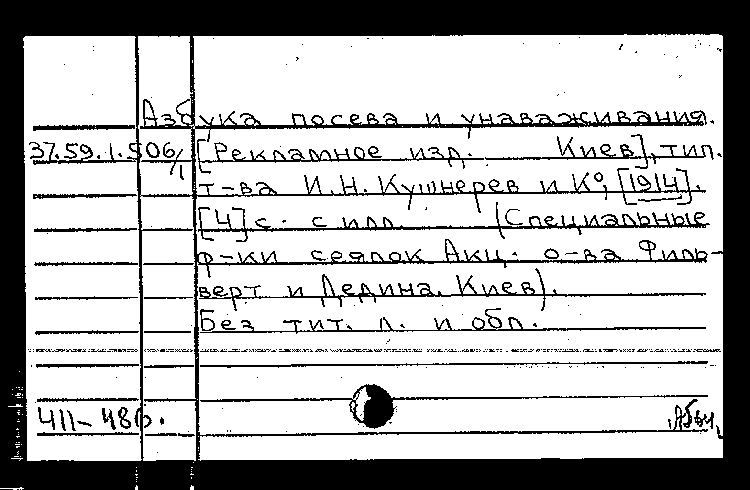 Азбука посева и унаваживания.
37.59.1.506/1 [Рекламное изд. Киев], тип.
т-ва И.Н. Кушнерев и Кº, [1914].
[4] с. с илл. (Специальные
ф-ки сеялок Акц. о-ва Филь-
верт и Дедина. Киев).
Без тит. л. и обл.
411-48б.